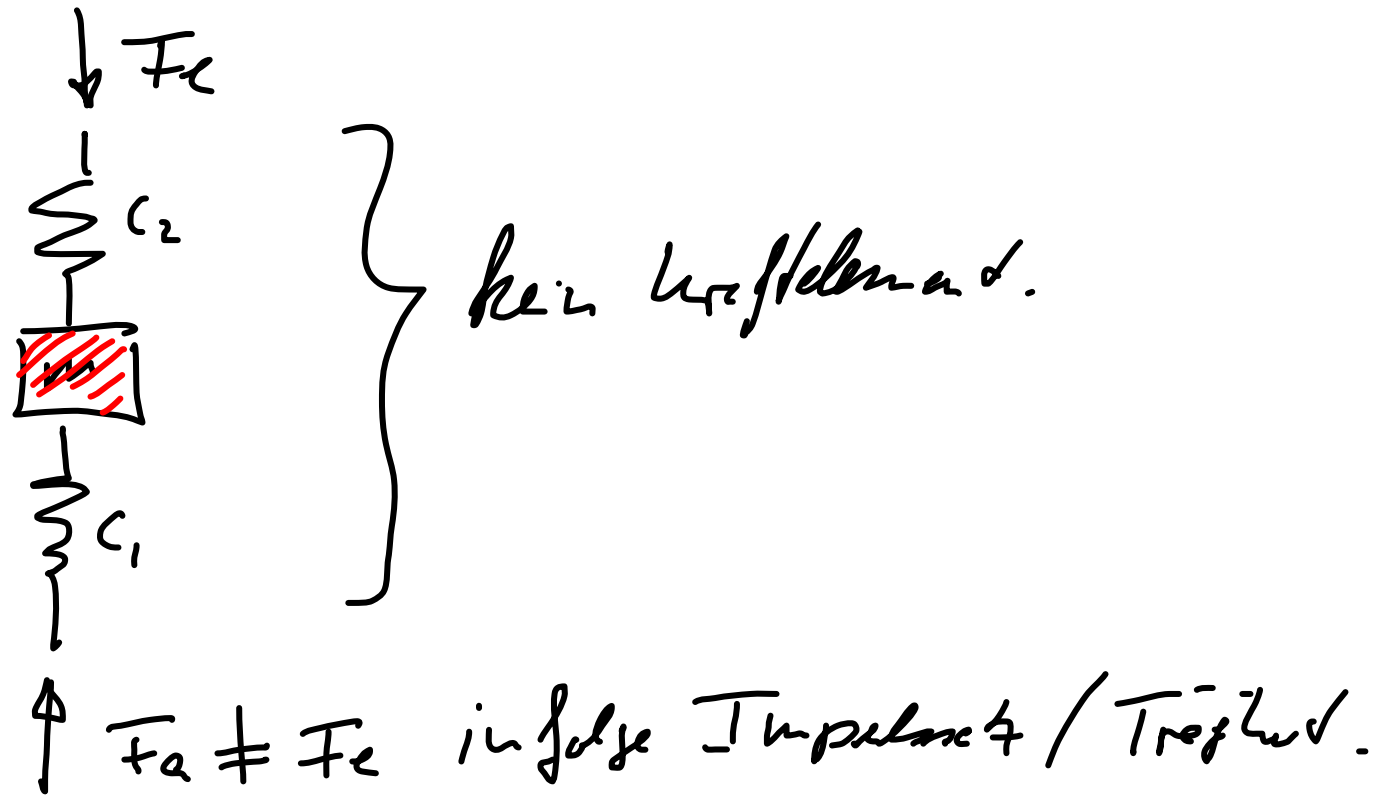 Fe
c₂
kein Kraftelement.
m
c₁
Fa ≠ Fe infolge Impulssatz / Trägheit.